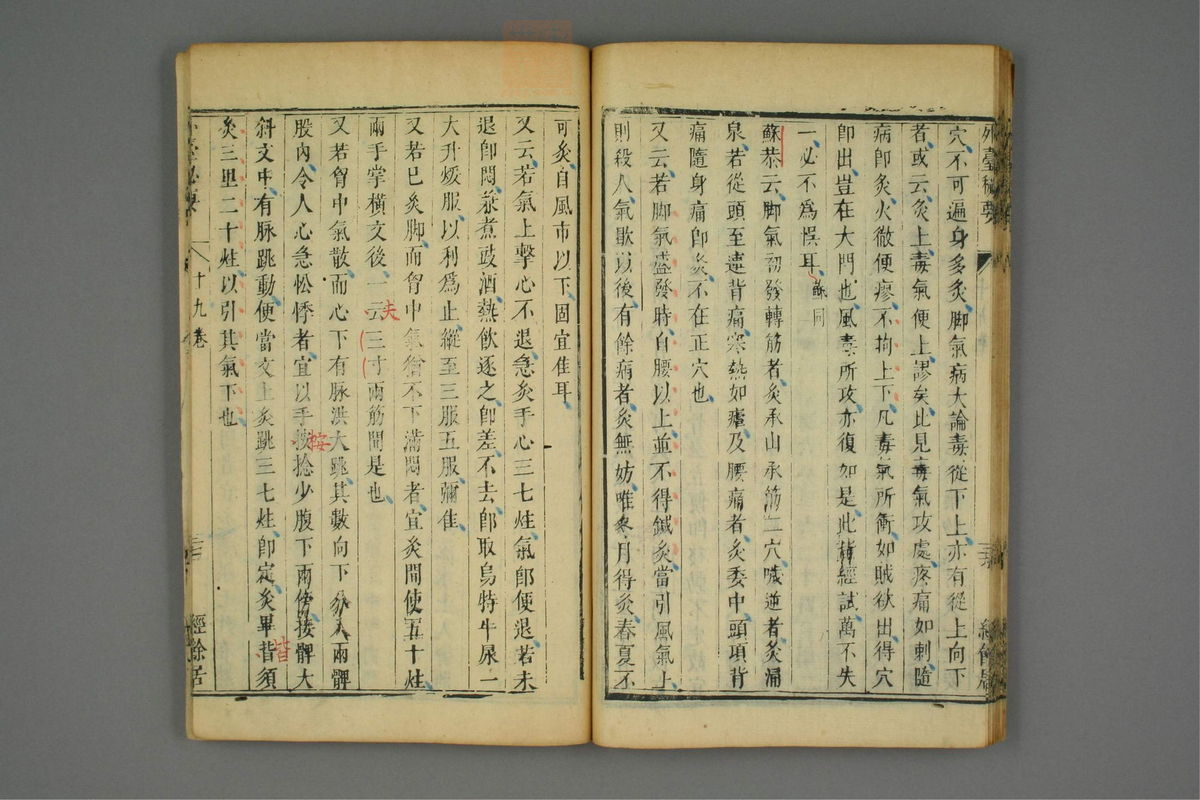 外臺秘要
穴不可遍身多灸脚氣病大論毒從下上亦有從上向下
者或云灸上毒氣便上謬矣此見毒氣攻處疼痛如刺隨
病即灸火徹便瘳不拘上下凡毒氣所衝如賊欲出得穴
即出豈在大門也風毒所攻亦復如是此皆經試萬不失
一必不為悮耳蘇同
蘇恭云脚氣初發轉筋者灸承山承筋二穴㗜逆者灸湧
泉若從頭至連背痛寒熱如瘧及腰痛者灸委中頭項背
痛隨身痛即灸不在正穴也
又云若脚氣盛發時自腰以上並不得鍼灸當引風氣上
則殺人氣歇以後有餘病者灸無妨唯冬月得灸春夏不
可灸自風市以下固宜佳耳
又云若氣上擊心不退急灸手心三七炷氣即便退若未
退即悶兼煮豉酒熱飲逐之即差不去即取烏特牛尿一
大升煖服以利為止縱至三服五服彌佳
又若已灸脚而胷中氣猶不下滿悶者宜灸間使五十炷
兩手掌橫文後一云三寸兩筋間是也
夫
又若胷中氣散而心下有脉洪大跳其數向下分入兩髀
股內令人心急忪悸者宜以手按捻少腹下兩傍接髀大
按
斜文中有脉跳動便當文上灸跳三七炷即定灸畢皆須
皆
灸三里二十炷以引其氣下也
十九卷
經餘居